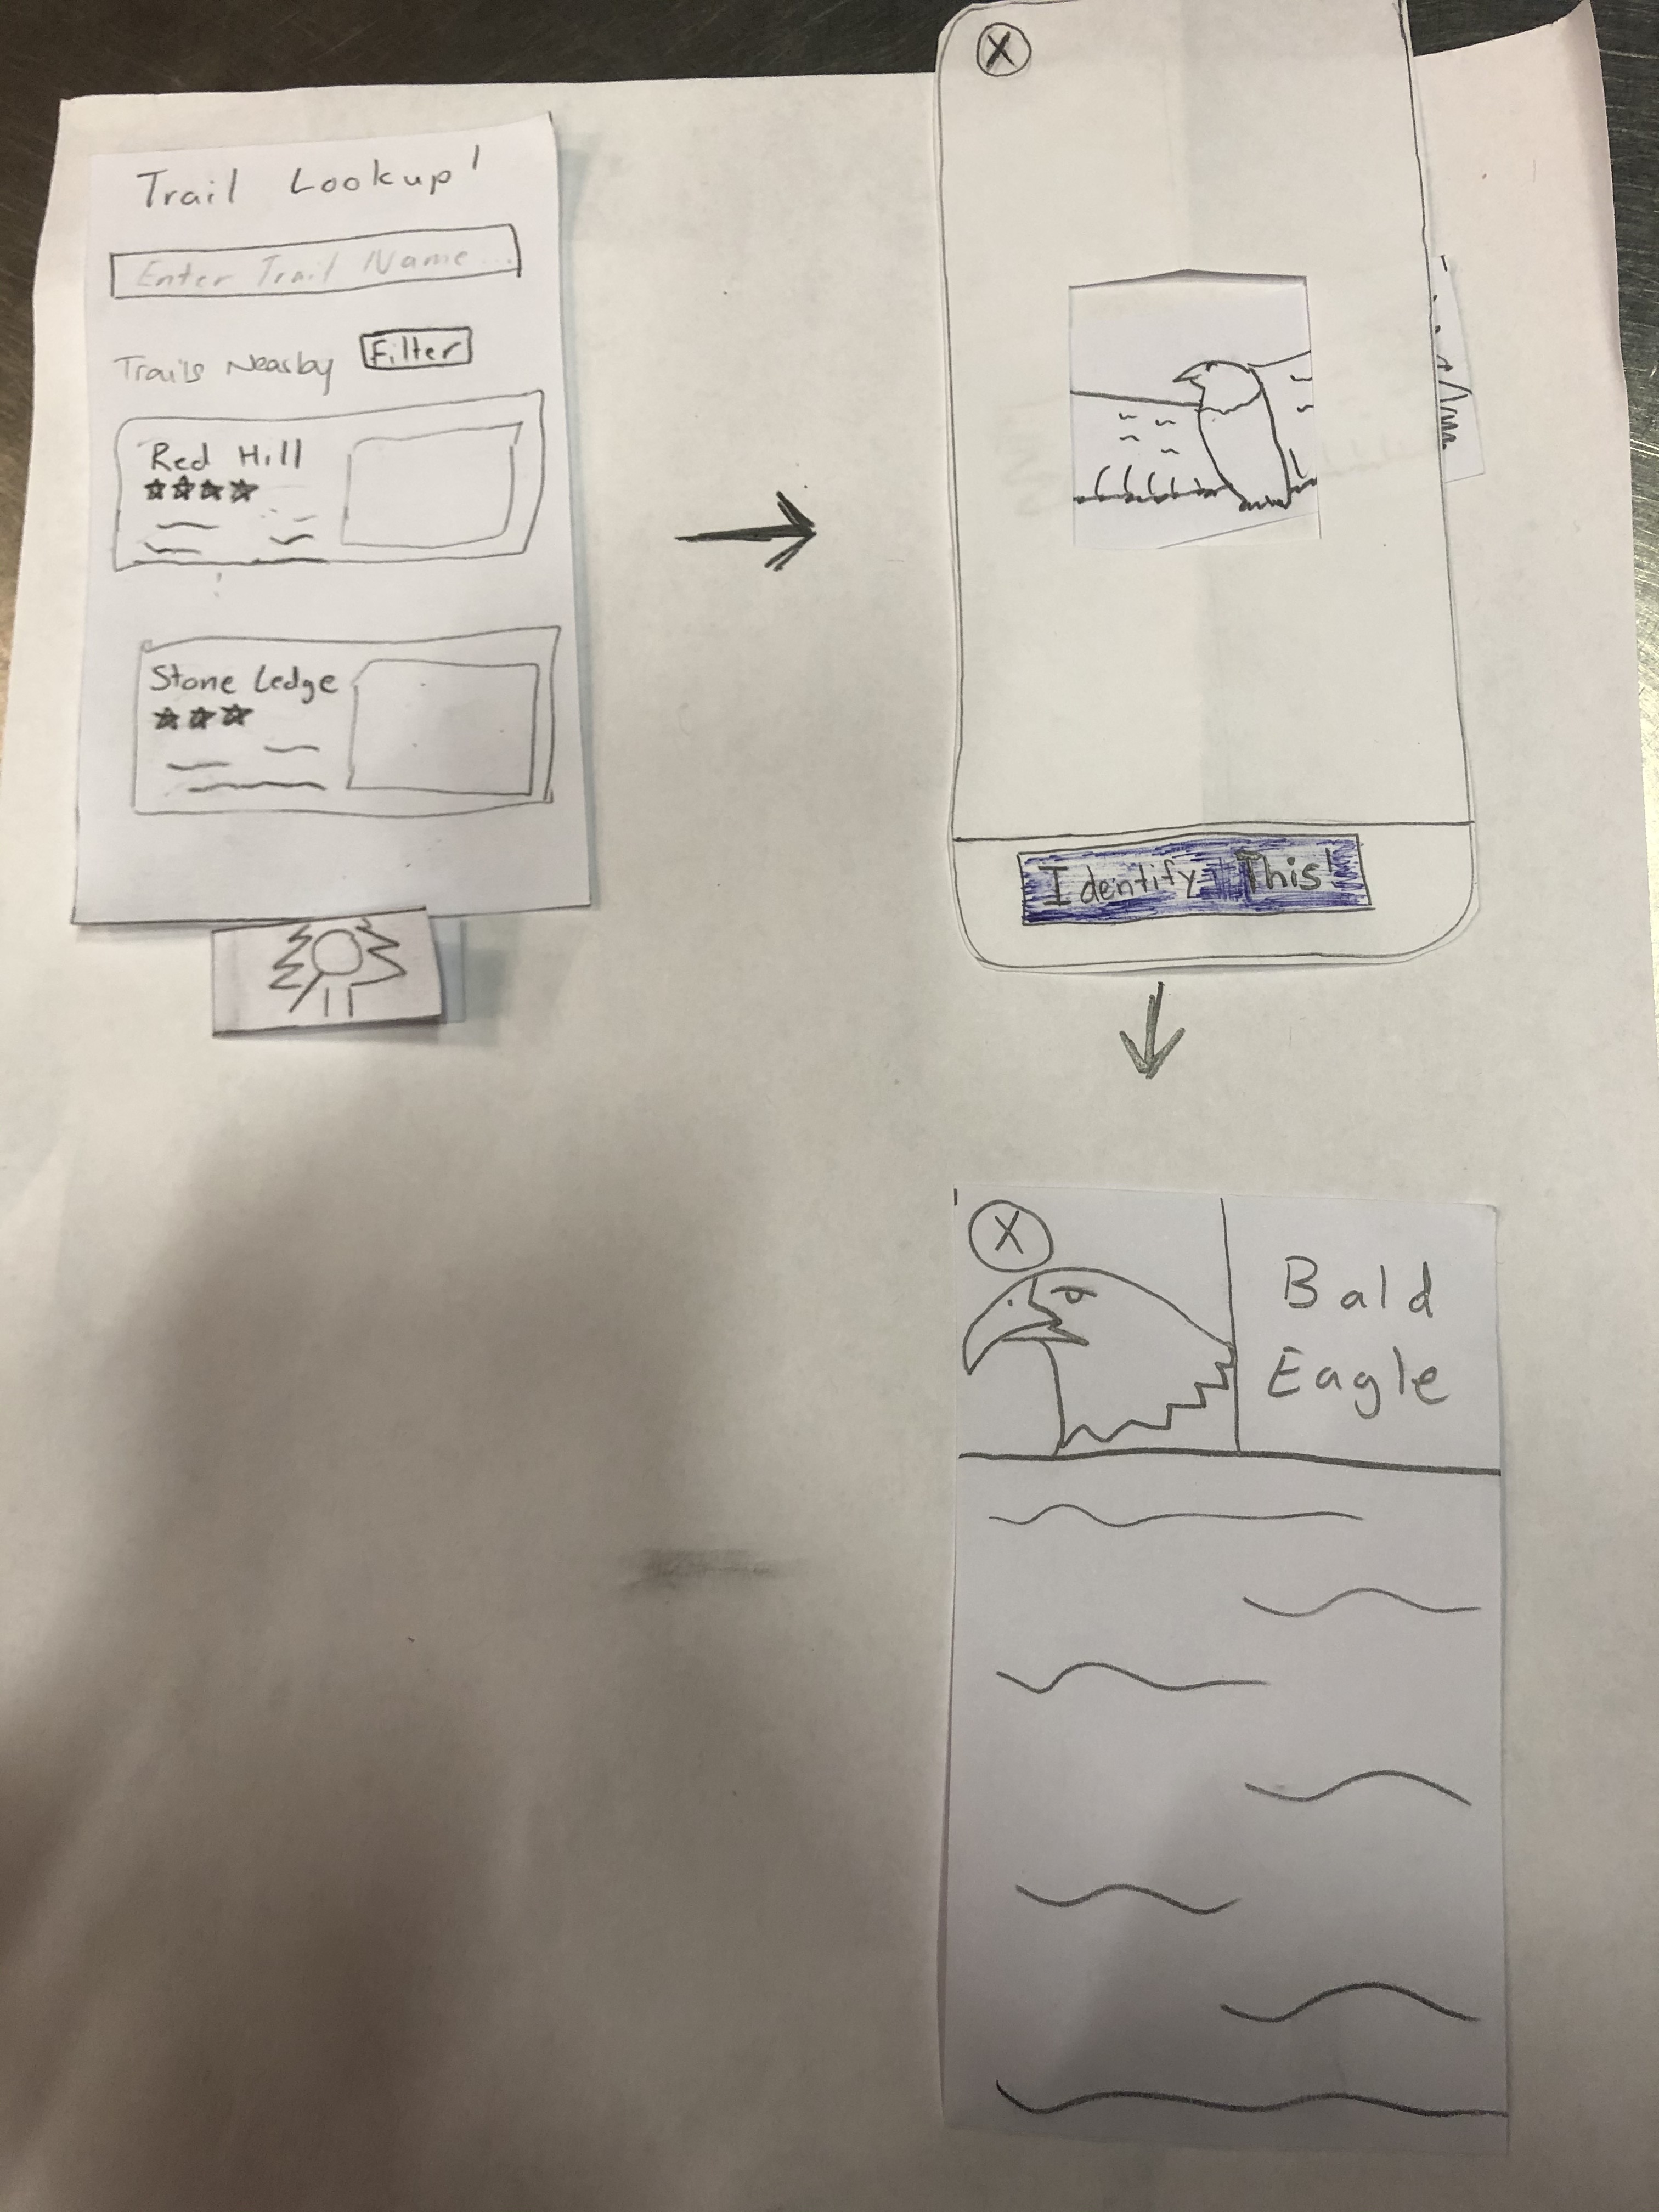 Trail Lookup!
Enter Trail Name...
Trails Nearby
Filter
Red Hill
Stone Ledge
X
Identify This!
X
Bald
Eagle